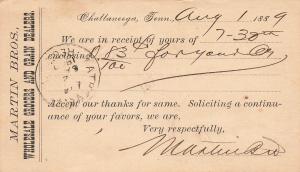 MARTIN BROS.,
WHOLESALE GROCERS AND GRAIN DEALERS.
Chattanooga, Tenn. Aug 1 1889
We are in receipt of yours of 7-30th
enclosing
Accept our thanks for same. Soliciting a continu-
ance of your favors, we are,
Very respectfully,
Martin Bro